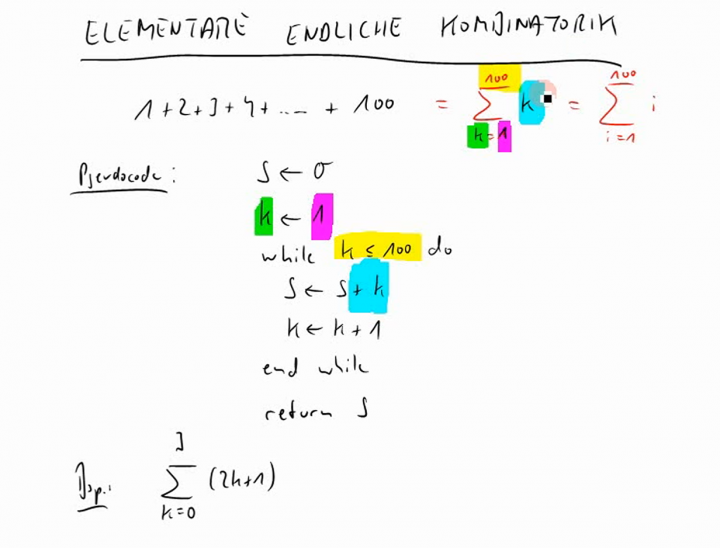 ELEMENTARE ENDLICHE KOMBINATORIK
1+2+3+4+ ..... + 100 = ∑_{k=1}^{100} k = ∑_{i=1}^{100} i
Pseudocode:
S ← 0
k ← 1
while k ≤ 100 do
S ← S + k
k ← k + 1
end while
return S
Bsp.: ∑_{k=0}^{3} (2k+1)